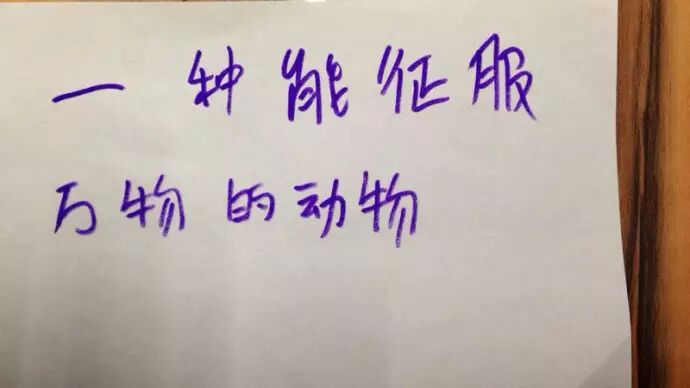 一种能征服
万物的动物